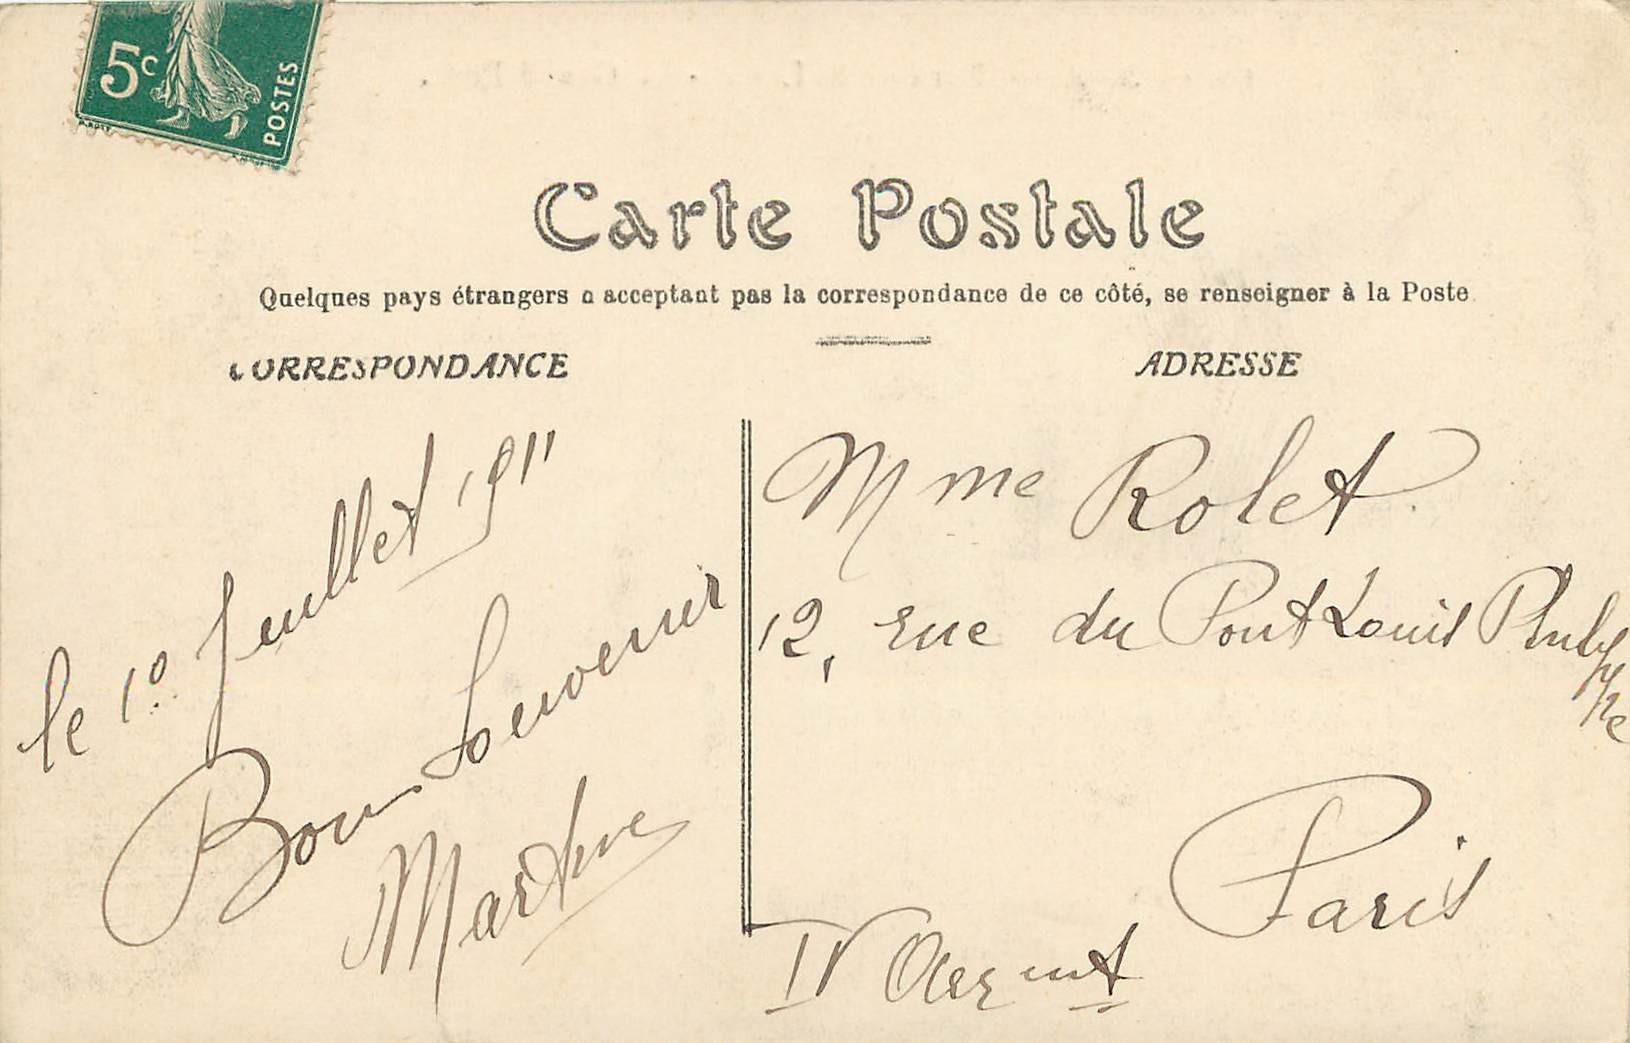 5c
POSTES
Carte Postale
Quelques pays étrangers n acceptant pas la correspondance de ce côté, se renseigner à la Poste
CORRESPONDANCE
le 1º Juillet 1911
Bon Souvenir
Marthe
ADRESSE
Mme Rolet
12, rue du Pont Louis Philippe
Paris
IV Arrent